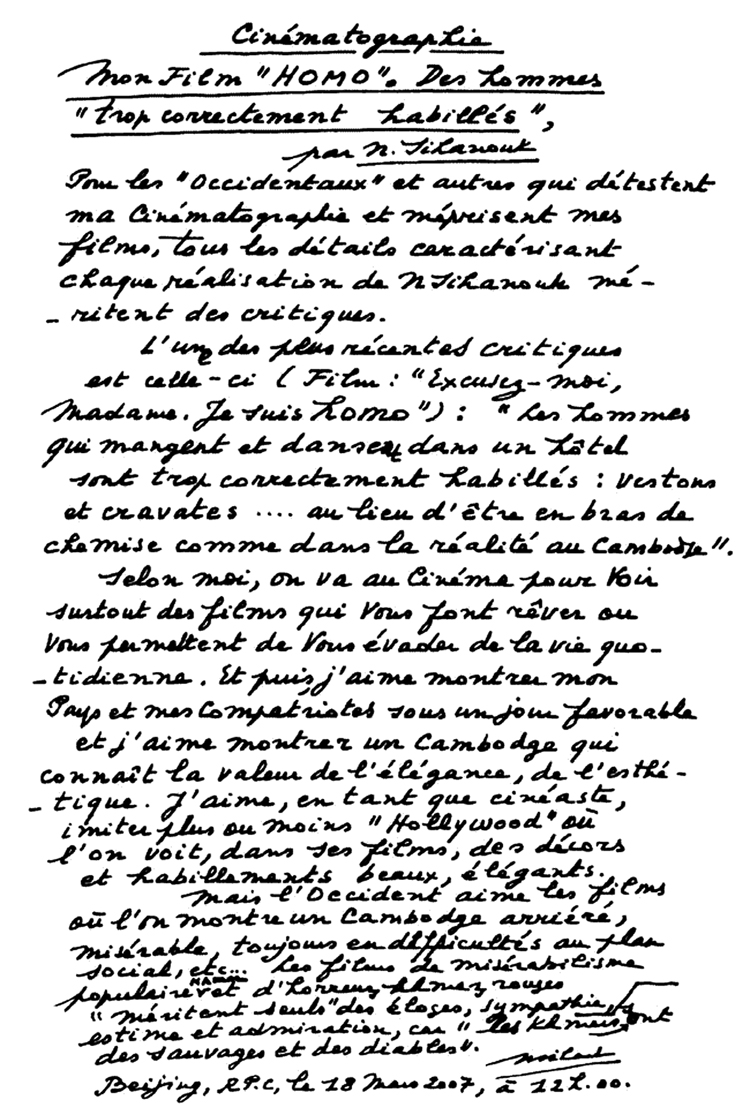 Cinématographie
Mon Film "HOMO". Des hommes
"trop correctement habillés",
par N. Sihanouk
Pour les "Occidentaux" et autres qui détestent
ma Cinématographie et méprisent mes
films, tous les détails caractérisant
chaque réalisation de N Sihanouk mé-
- ritent des critiques.
L'une des plus récentes critiques
est celle-ci (Film : "Excusez-moi,
Madame. Je suis homo") : "Les hommes
qui mangent et dansent dans un hôtel
sont trop correctement habillés : vestons
et cravates .... au lieu d'être en bras de
chemise comme dans la réalité au Cambodge".
Selon moi, on va au Cinéma pour voir
surtout des films qui vous font rêver ou
vous permettent de vous évader de la vie quo-
- tidienne. Et puis, j'aime montrer mon
Pays et mes Compatriotes sous un jour favorable
et j'aime montrer un Cambodge qui
connaît la valeur de l'élégance, de l'esthé-
- tique. J'aime, en tant que cinéaste,
imiter plus ou moins "Hollywood" où
l'on voit, dans ses films, des décors
et habillements beaux, élégants.
Mais l'Occident aime les films
où l'on montre un Cambodge arriéré,
misérable, toujours en difficultés au plan
social, etc... Les films de misérabilisme
populaire et d'horreur khmers rouges
"méritent seuls" des éloges, sympathie,
estime et admiration, car "les Khmers sont
des sauvages et des diables".
Beijing, R.P.C, le 18 Mars 2007, à 12h.00.